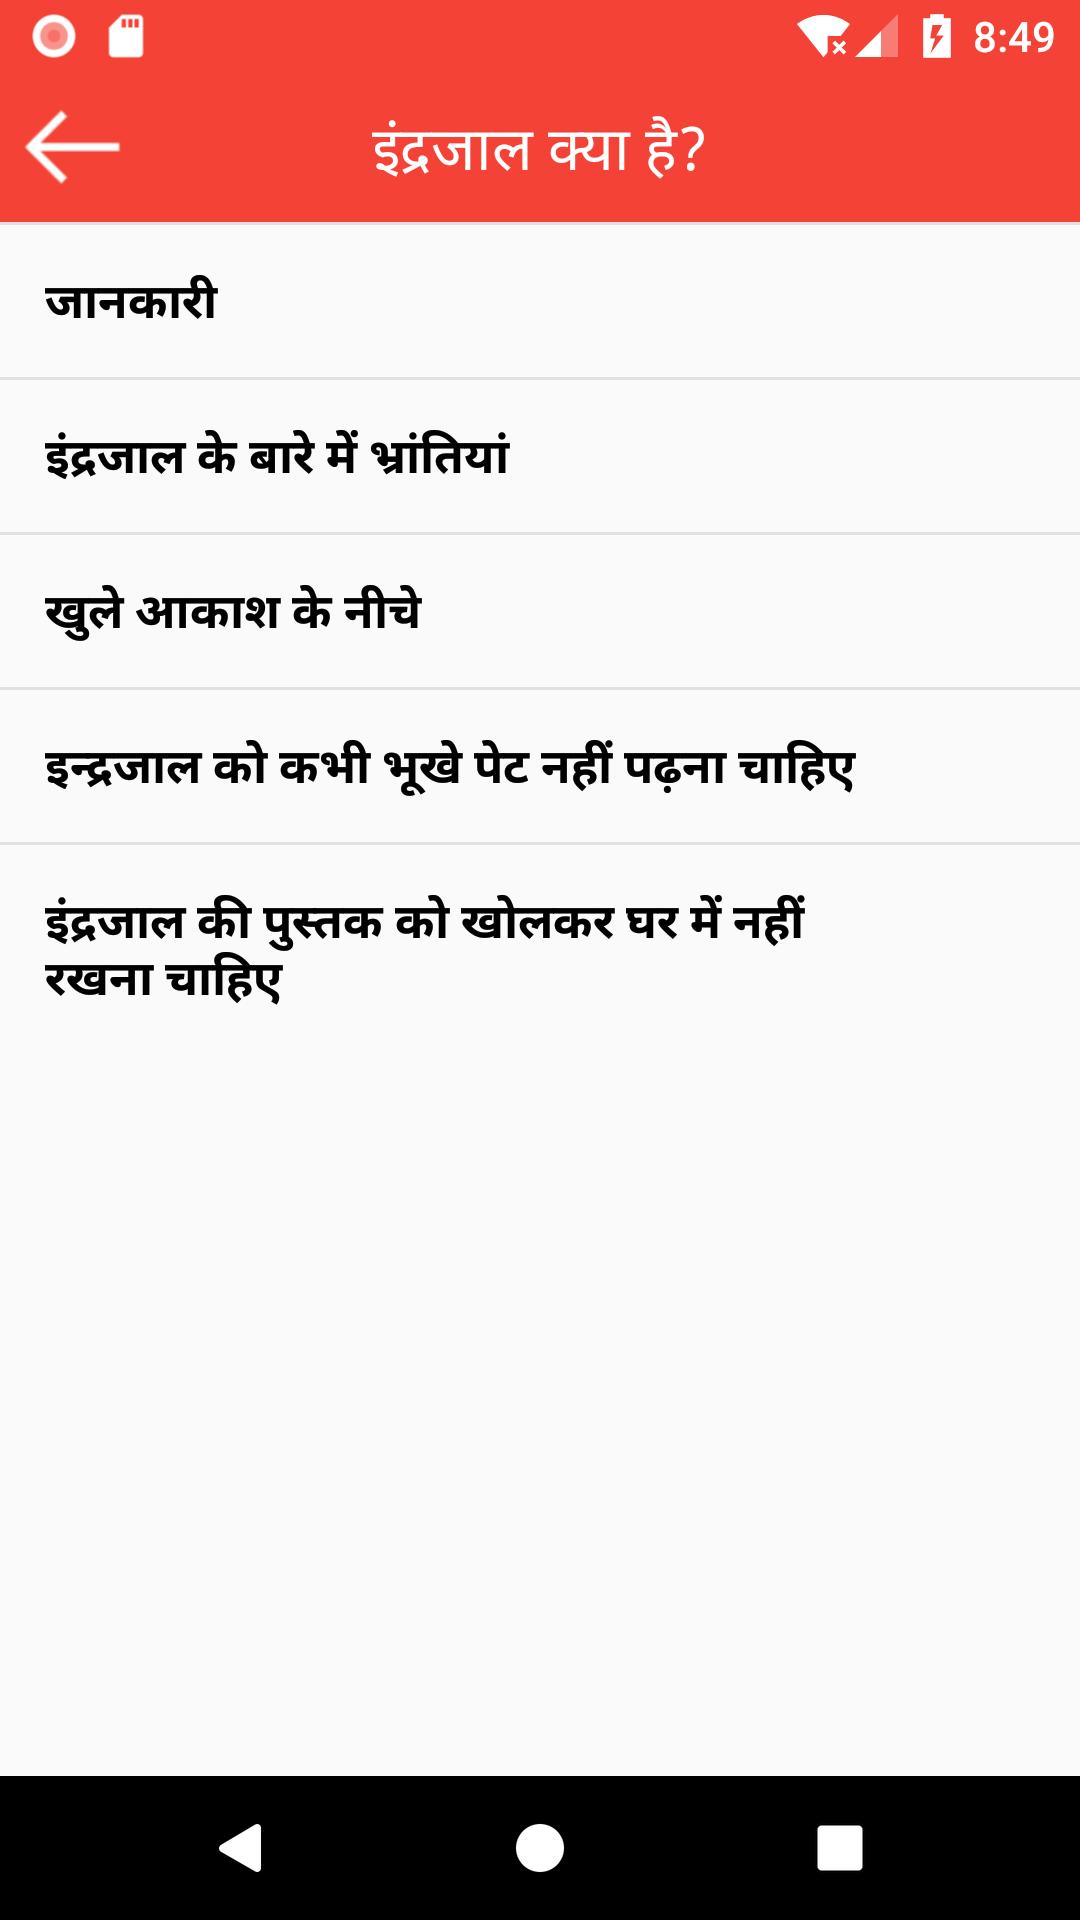 8:49
इंद्रजाल क्या है?
जानकारी
इंद्रजाल के बारे में भ्रांतियां
खुले आकाश के नीचे
इन्द्रजाल को कभी भूखे पेट नहीं पढ़ना चाहिए
इंद्रजाल की पुस्तक को खोलकर घर में नहीं
रखना चाहिए